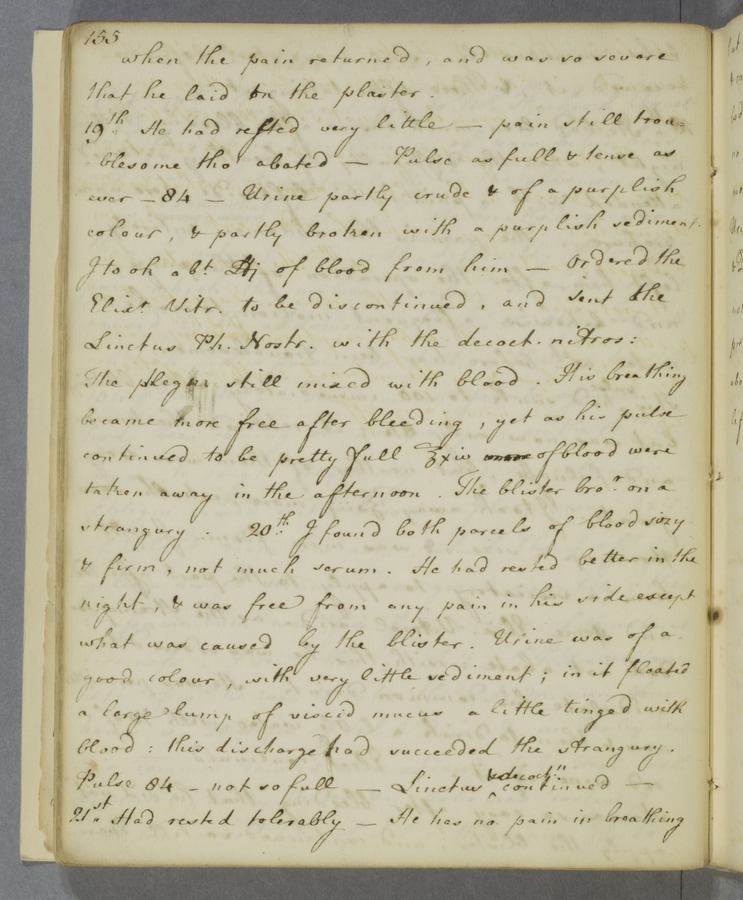 155
when the pain returned, and was so severe
that he laid on the plaister.
19th. He had rested very little — pain still trou=
blesome tho' abated — Pulse as full & tense as
ever — 84 — Urine partly crude & of a purplish
colour, & partly broken with a purplish sediment.
I took abt. ℔j of blood from him — Ordered the
Elixr. Vitr. to be discontinued, and sent the
Linctus Ph. Nostr. with the decoct. nitros:
The plegm still mixed with blood. His breathing
became more free after bleeding, yet as his pulse
continued to be pretty full ℥xiv of blood were
taken away in the afternoon. The blister bro't on a
strangury. 20th. I found both parcels of blood sizy
& firm, not much serum. He had rested better in the
night, & was free from any pain in his side except
what was caused by the blister. Urine was of a
good colour, with very little sediment; in it floated
a large lump of viscid mucus a little tinged with
blood: this discharge had succeeded the strangury.
Pulse 84 — not so full — Linctus & decoctn. continued —
21st. Had rested tolerably — He has no pain in breathing